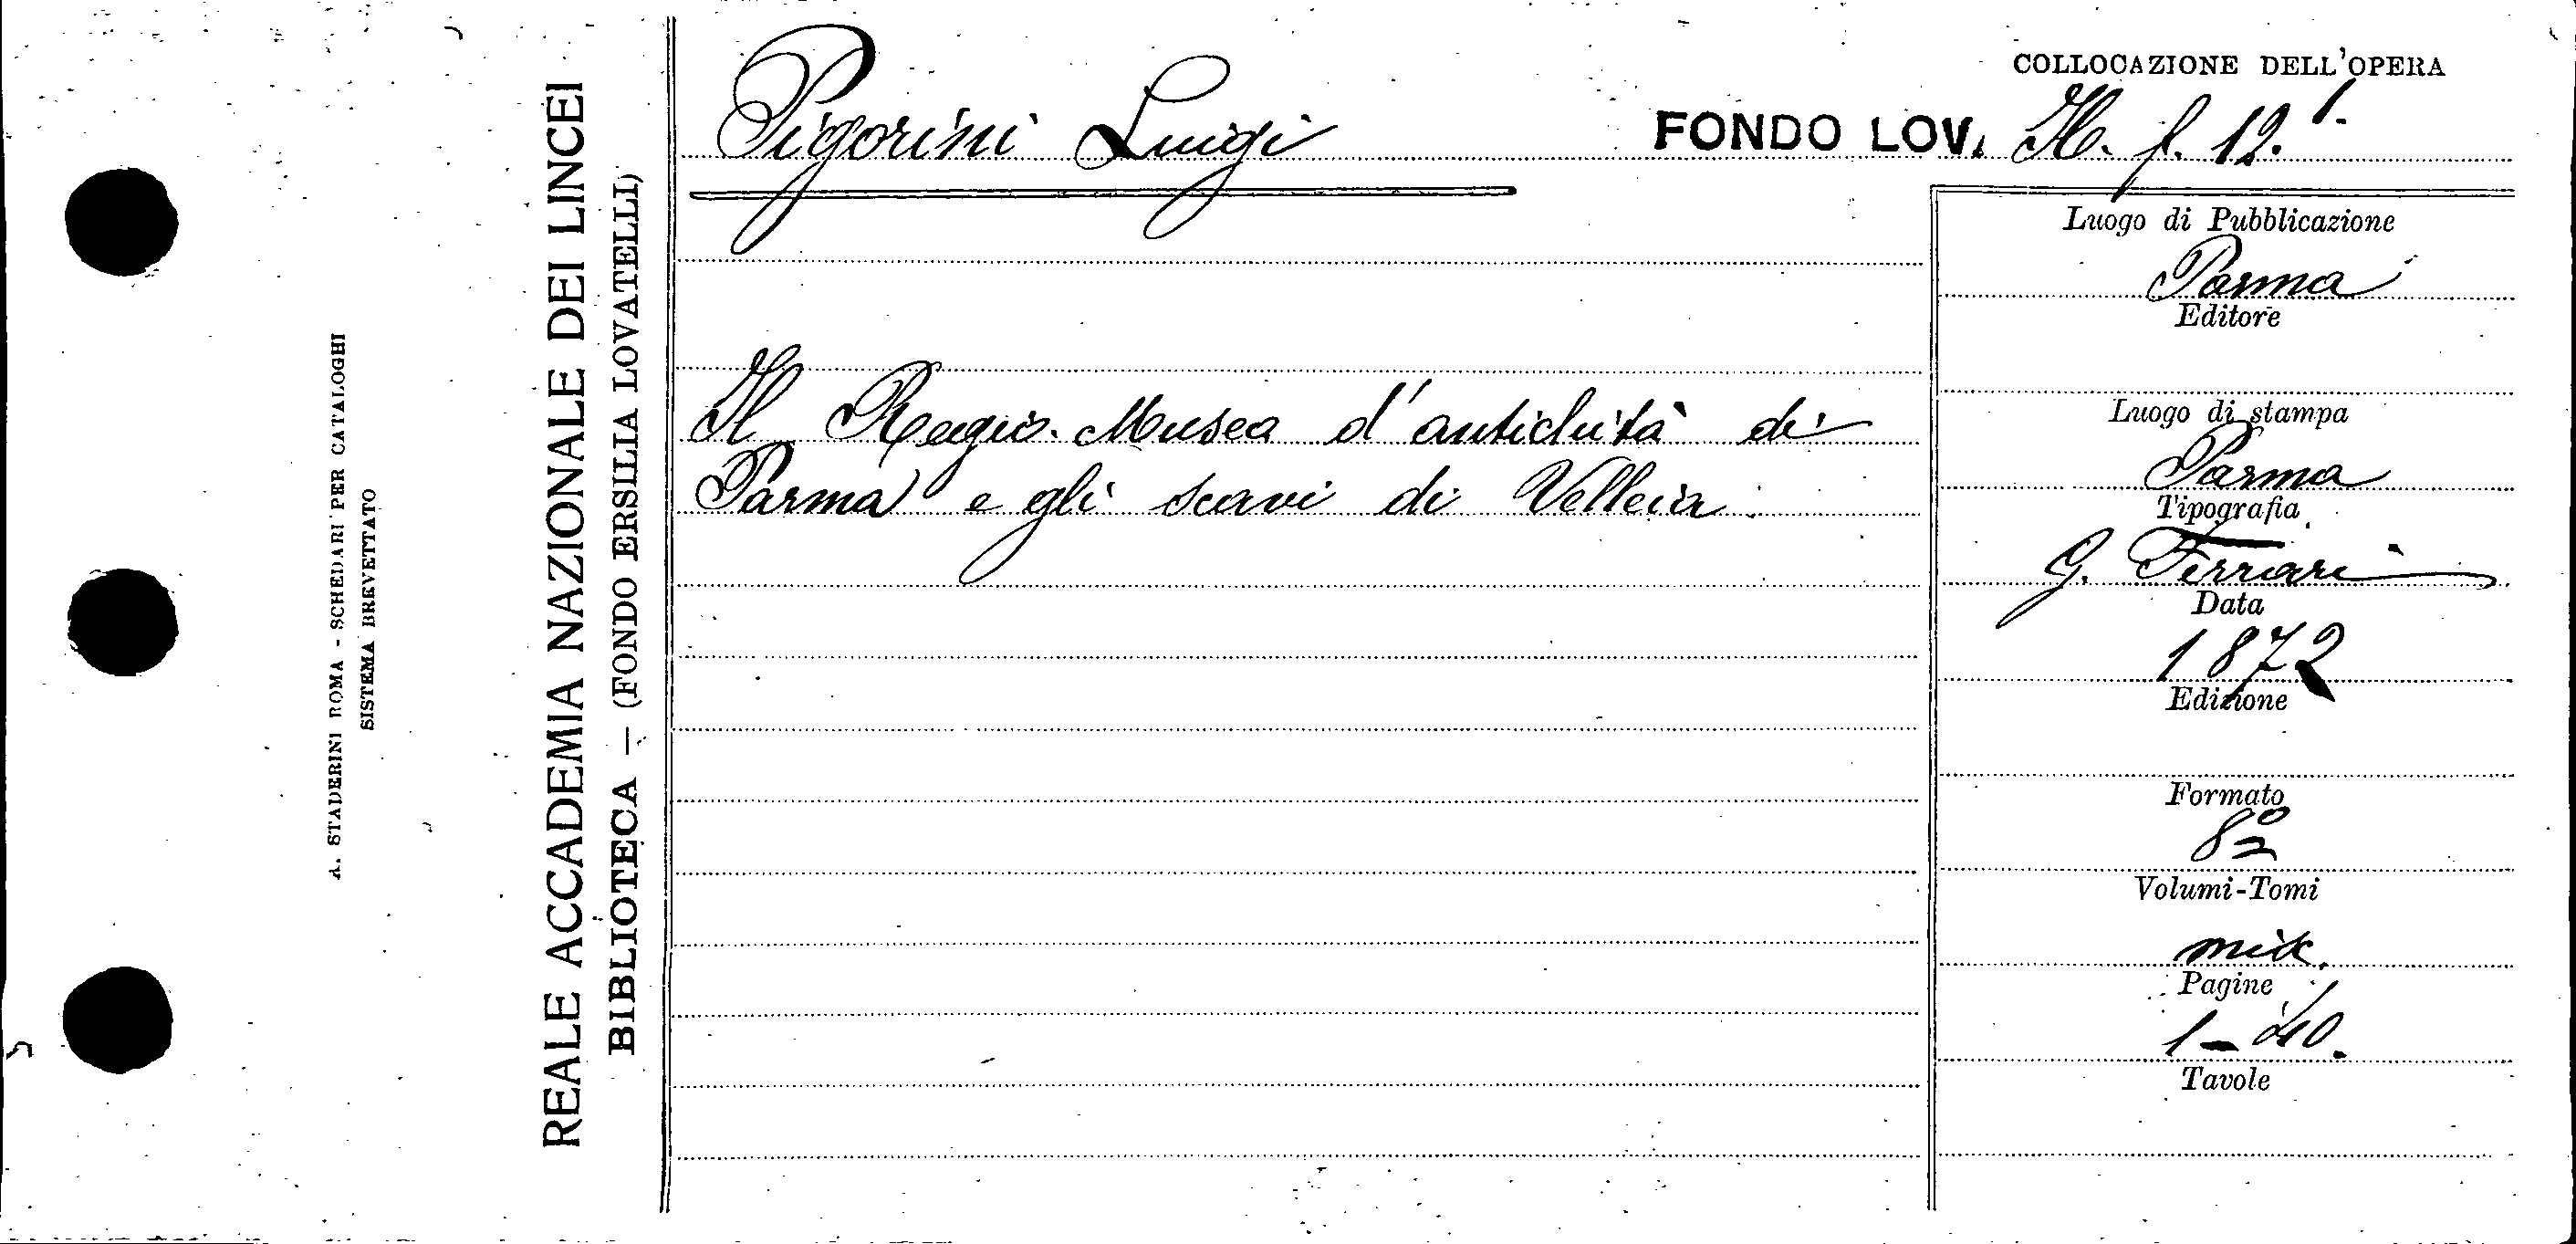 A. STADERINI ROMA - SCHEDARI PER CATALOGHI
SISTEMA BREVETTATO
REALE ACCADEMIA NAZIONALE DEI LINCEI
BIBLIOTECA — (FONDO ERSILIA LOVATELLI)
Pigorini Luigi
COLLOCAZIONE DELL'OPERA
FONDO LOV. H. f. 12.1.
Il Regio Museo d'antichità di
Parma e gli scavi di Velleia.
Luogo di Pubblicazione
Parma
Editore
Luogo di stampa
Parma
Tipografia
G. Ferrari
Data
1872
Edizione
Formato
8º
Volumi-Tomi
Pagine
1-40.
Tavole